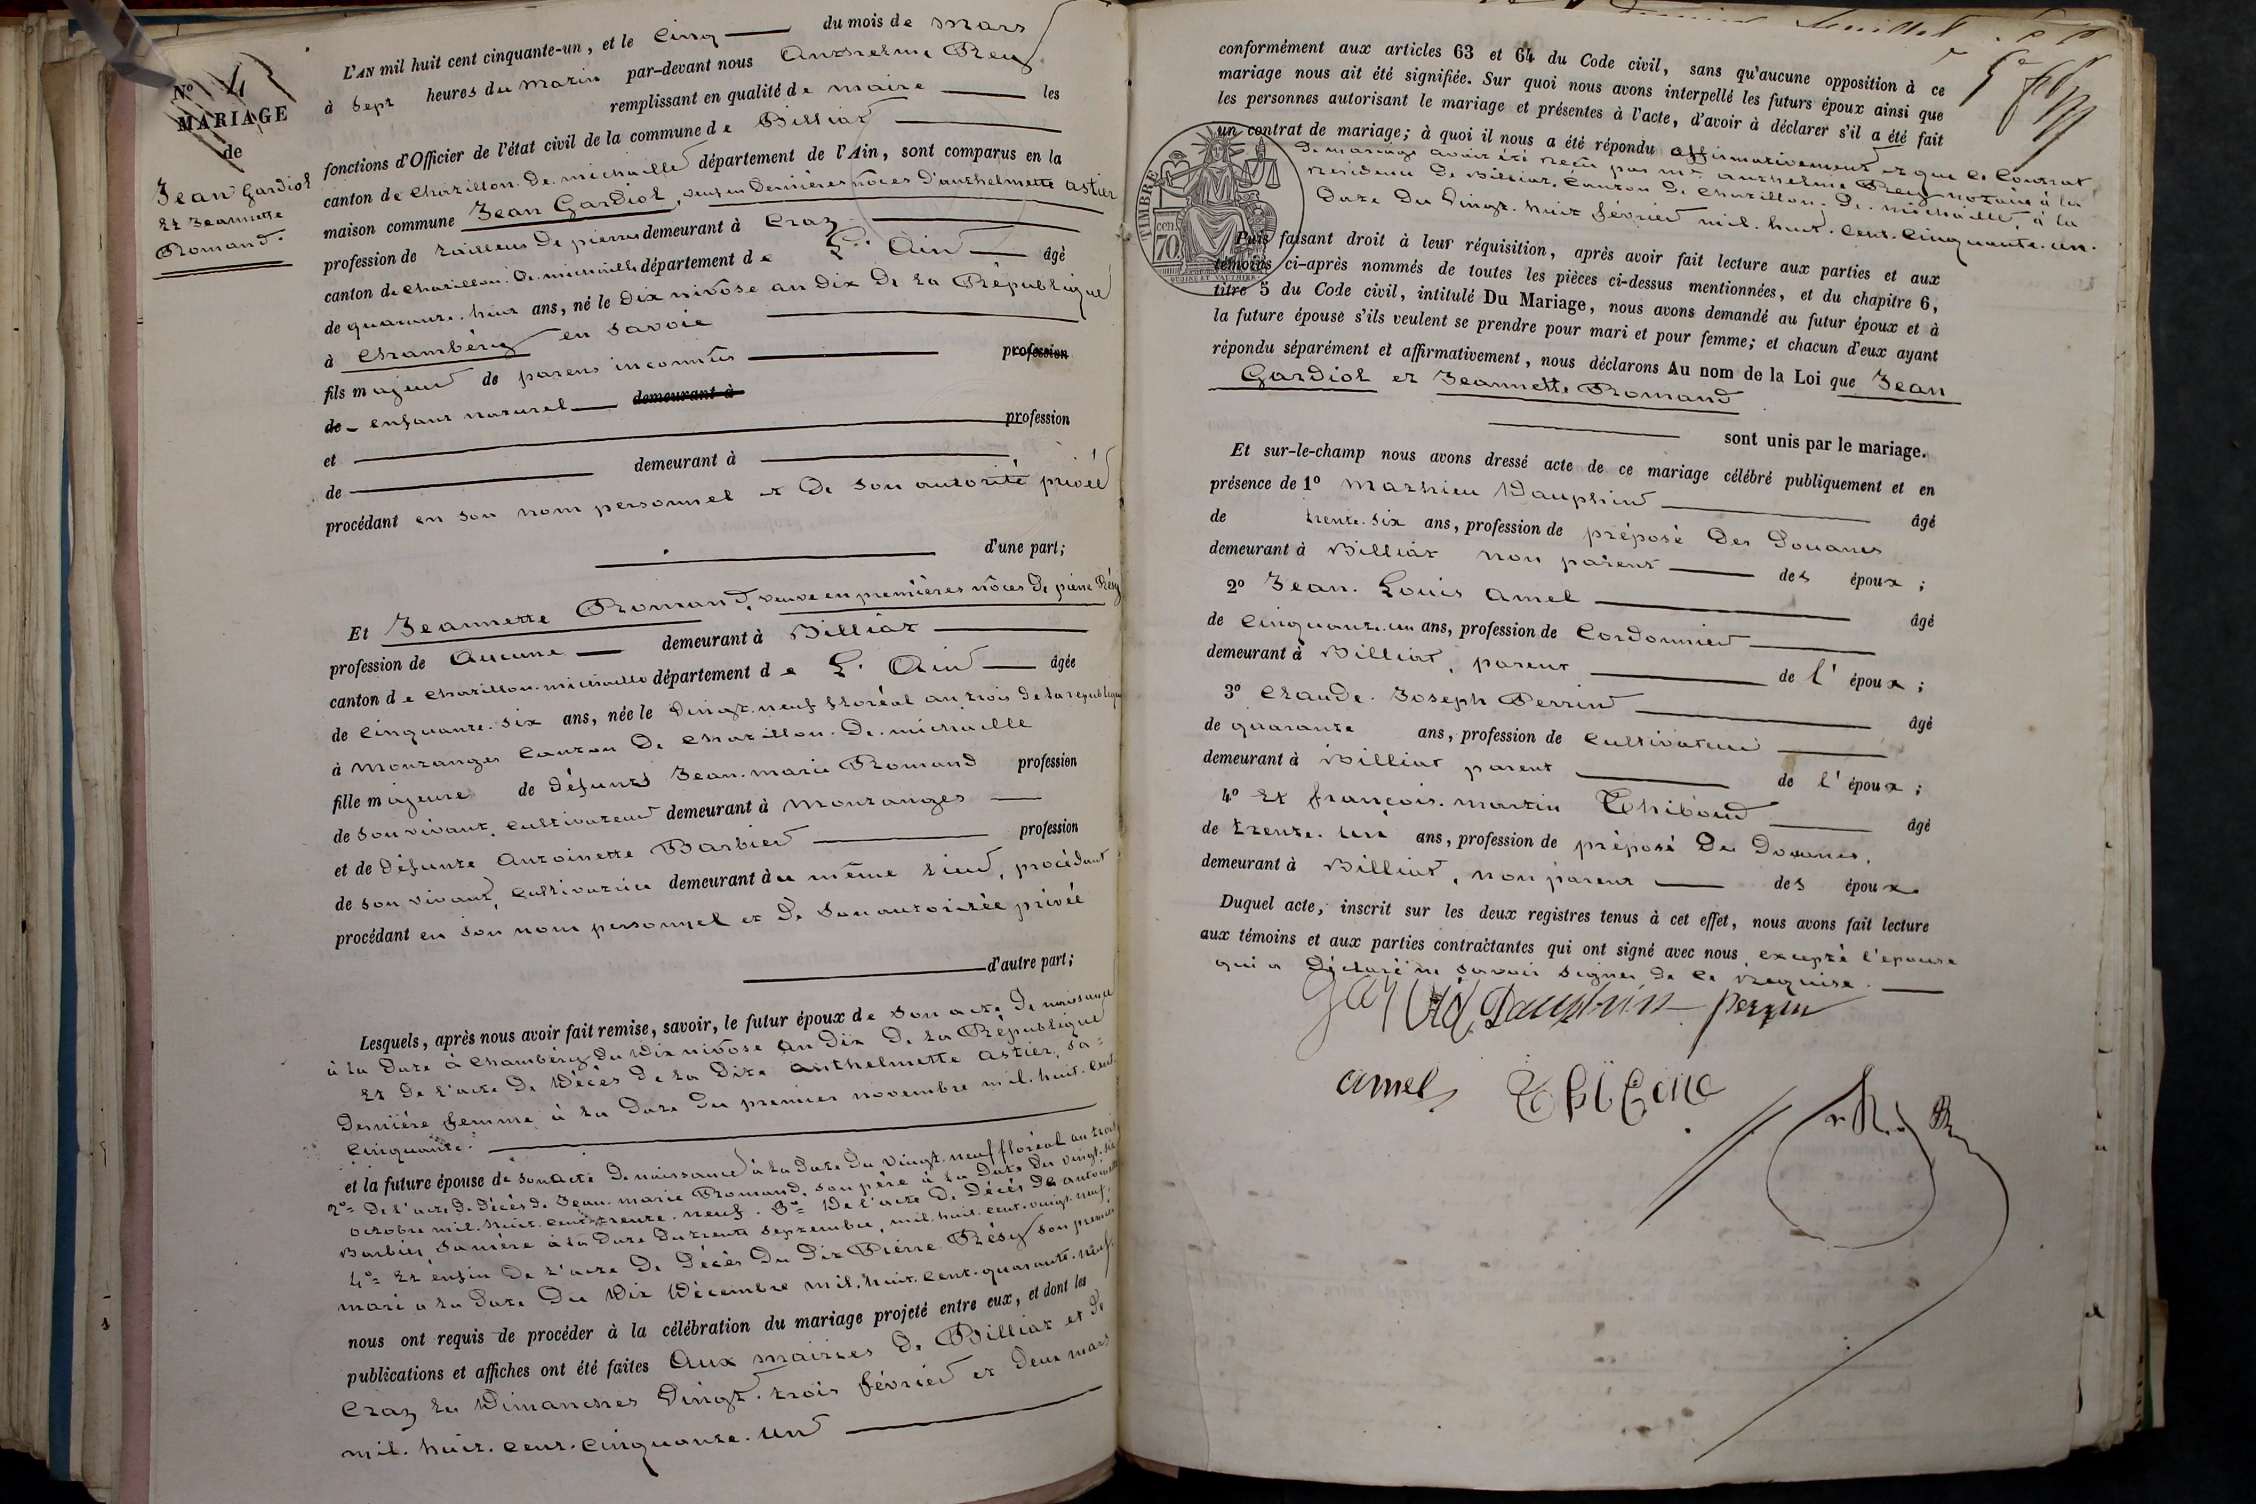 N° 4
MARIAGE
de
Jean Gardiol
et Jeannette
Romand.
L'AN mil huit cent cinquante-un, et le cinq du mois de mars
à sept heures du matin par-devant nous Anthelme Rey
remplissant en qualité de maire les
fonctions d'Officier de l'état civil de la commune de Billiat
canton de Chatillon de michaille département de l'Ain, sont comparus en la
maison commune Jean Gardiol, veuf en dernières nôces d'anthelmette astier
profession de tailleur de pierres demeurant à Craz
canton de Chatillon de michaille département de L'Ain âgé
de quarante huit ans, né le dix nivôse an dix de la République
à Chambéry en Savoie
fils majeur de parens inconnûs profession
de enfant naturel demeurant à
et profession
de demeurant à
procédant en son nom personnel et de son autorité privée
d'une part;
Et Jeannette Romand, veuve en premières nôces de pierre Résy
profession de aucune demeurant à Billiat
canton de Chatillon michaille département de L'Ain âgée
de cinquante six ans, née le vingt neuf floréal an trois de la republique
à Montanges Canton de Chatillon de michaille
fille majeure de défunts Jean marie Romand profession
de son vivant, cultivateur demeurant à Montanges
et de défunte Antoinette Barbier profession
de son vivant, cultivatrice demeurant au même lieu, procédant
procédant en son nom personnel et de son autorisée privée
d'autre part;
Lesquels, après nous avoir fait remise, savoir, le futur époux de son acte de naissance
à la date à Chambéry du dix nivose an dix de la République
Et de l'acte de décès de la dite anthelmette astier, sa
dernière femme à la date du premier novembre mil huit cent
cinquante.
et la future épouse de son acte de naissance à la date du vingt neuf floréal an trois
2° de l'acte de décès de Jean marie Romand, son père à la date du vingt six
octobre mil huit cent trente neuf. 3° De l'acte de décès de antoinette
Barbier sa mère à la date du trente septembre mil huit cent vingt neuf,
4° Et enfin de l'acte de décès du dit Pierre Résy son premier
mari à la date du dix décembre mil huit cent quarante neuf.
nous ont requis de procéder à la célébration du mariage projeté entre eux, et dont les
publications et affiches ont été faites aux mairies de Billiat et de
Craz les dimanches vingt trois février et deux mars
mil huit cent cinquante un
conformément aux articles 63 et 64 du Code civil, sans qu'aucune opposition à ce
mariage nous ait été signifiée. Sur quoi nous avons interpellé les futurs époux ainsi que
les personnes autorisant le mariage et présentes à l'acte, d'avoir à déclarer s'il a été fait
un contrat de mariage; à quoi il nous a été répondu affirmativement et que le Contrat
de mariage avait été reçu par Me anthelme Rey notaire à la
résidence de Billiat, Canton de Chatillon de michaille à la
date du vingt huit février mil huit cent cinquante un.
TIMBRE
70 cen
Puis faisant droit à leur réquisition, après avoir fait lecture aux parties et aux
témoins ci-après nommés de toutes les pièces ci-dessus mentionnées, et du chapitre 6,
titre 5 du Code civil, intitulé Du Mariage, nous avons demandé au futur époux et à
la future épouse s'ils veulent se prendre pour mari et pour femme; et chacun d'eux ayant
répondu séparément et affirmativement, nous déclarons Au nom de la Loi que Jean
Gardiol et Jeannette Romand
sont unis par le mariage.
Et sur-le-champ nous avons dressé acte de ce mariage célébré publiquement et en
présence de 1° Mathieu Dauphin âgé
de trente six ans, profession de préposé des Douanes
demeurant à Billiat non parent des époux;
2° Jean Louis Amel âgé
de cinquante un ans, profession de Cordonnier
demeurant à Billiat, parent de l'époux;
3° Claude Joseph Perrin âgé
de quarante ans, profession de cultivateur
demeurant à Billiat parent de l'époux;
4° et françois martin Thiboud âgé
de trente un ans, profession de préposé des Douanes,
demeurant à Billiat, non parent des époux
Duquel acte, inscrit sur les deux registres tenus à cet effet, nous avons fait lecture
aux témoins et aux parties contractantes qui ont signé avec nous excepté l'épouse
qui a déclaré ne savoir signer de ce requise.
Dauphin perrin
amel